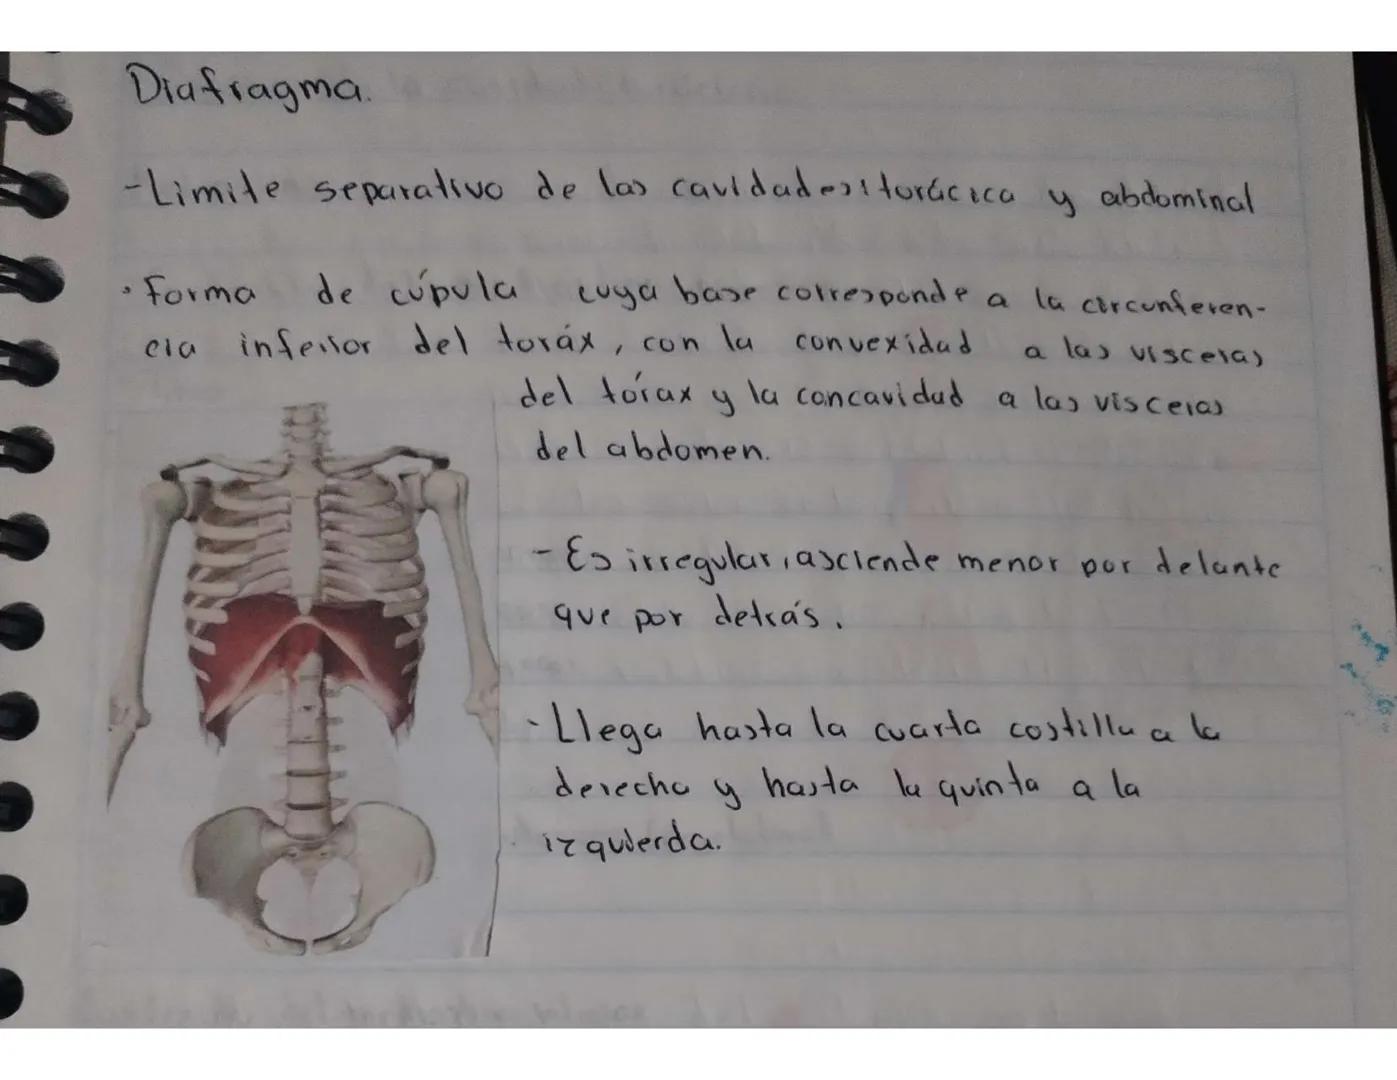 Diafragma.
-Limite separativo de las cavidades: torácica y abdominal
· Forma de cúpula cuya base corresponde a la circunferen-
cia inferior del toráx, con la convexidad a las visceras
del tórax y la concavidad a las visceras
del abdomen.
- Es irregular, asciende menor por delante
que por detrás.
- Llega hasta la cuarta costilla a la
derecha y hasta la quinta a la
izquierda.